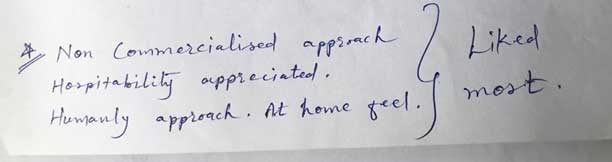 * Non Commercialised approach
Hospitability appreciated.
Humanly approach. At home feel.
Liked
most.